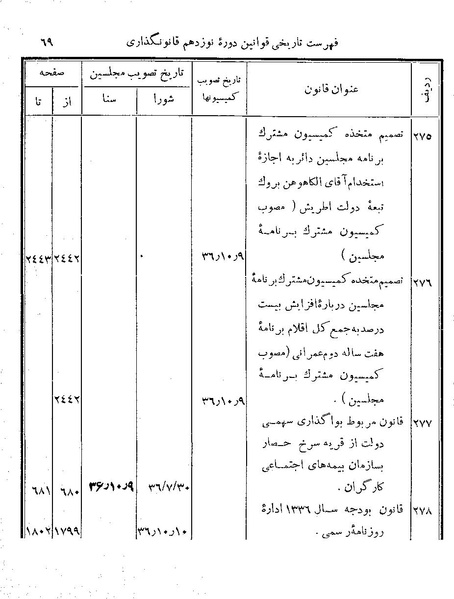 فهرست تاریخی قوانین دورهٔ نوزدهم قانونگذاری ۶۹
ردیف عنوان قانون تاریخ تصویب کمیسیونها تاریخ تصویب مجلسین صفحه
شورا سنا از تا
۲۷۵ تصمیم متخذه کمیسیون مشترك
برنامه مجلسین دائر به اجازهٔ
استخدام آقای الکاهوهن بروك
تبعهٔ دولت اطریش (مصوب
کمیسیون مشترك برنامهٔ
مجلسین) ۳۶٫۱۰٫۹ ۲۴۴۲ ۲۴۴۳
۲۷۶ تصمیم متخده کمیسیون مشترك برنامهٔ
مجلسین دربارهٔ افزایش بیست
درصد به جمع کل اقلام برنامهٔ
هفت ساله دوم عمرانی (مصوب
کمیسیون مشترك برنامهٔ
مجلسین). ۳۶٫۱۰٫۹ ۲۴۴۲
۲۷۷ قانون مربوط بواگذاری سهمی
دولت از قریه سرخ حصار
بسازمان بیمه‌های اجتماعی
کارگران. ۳۶/۷/۳۰ ۳۶٫۱۰٫۹ ۶۸۰ ۶۸۱
۲۷۸ قانون بودجه سال ۱۳۳۶ ادارهٔ
روزنامهٔ رسمی. ۳۶٫۱۰٫۱۰ ۱۷۹۹ ۱۸۰۲